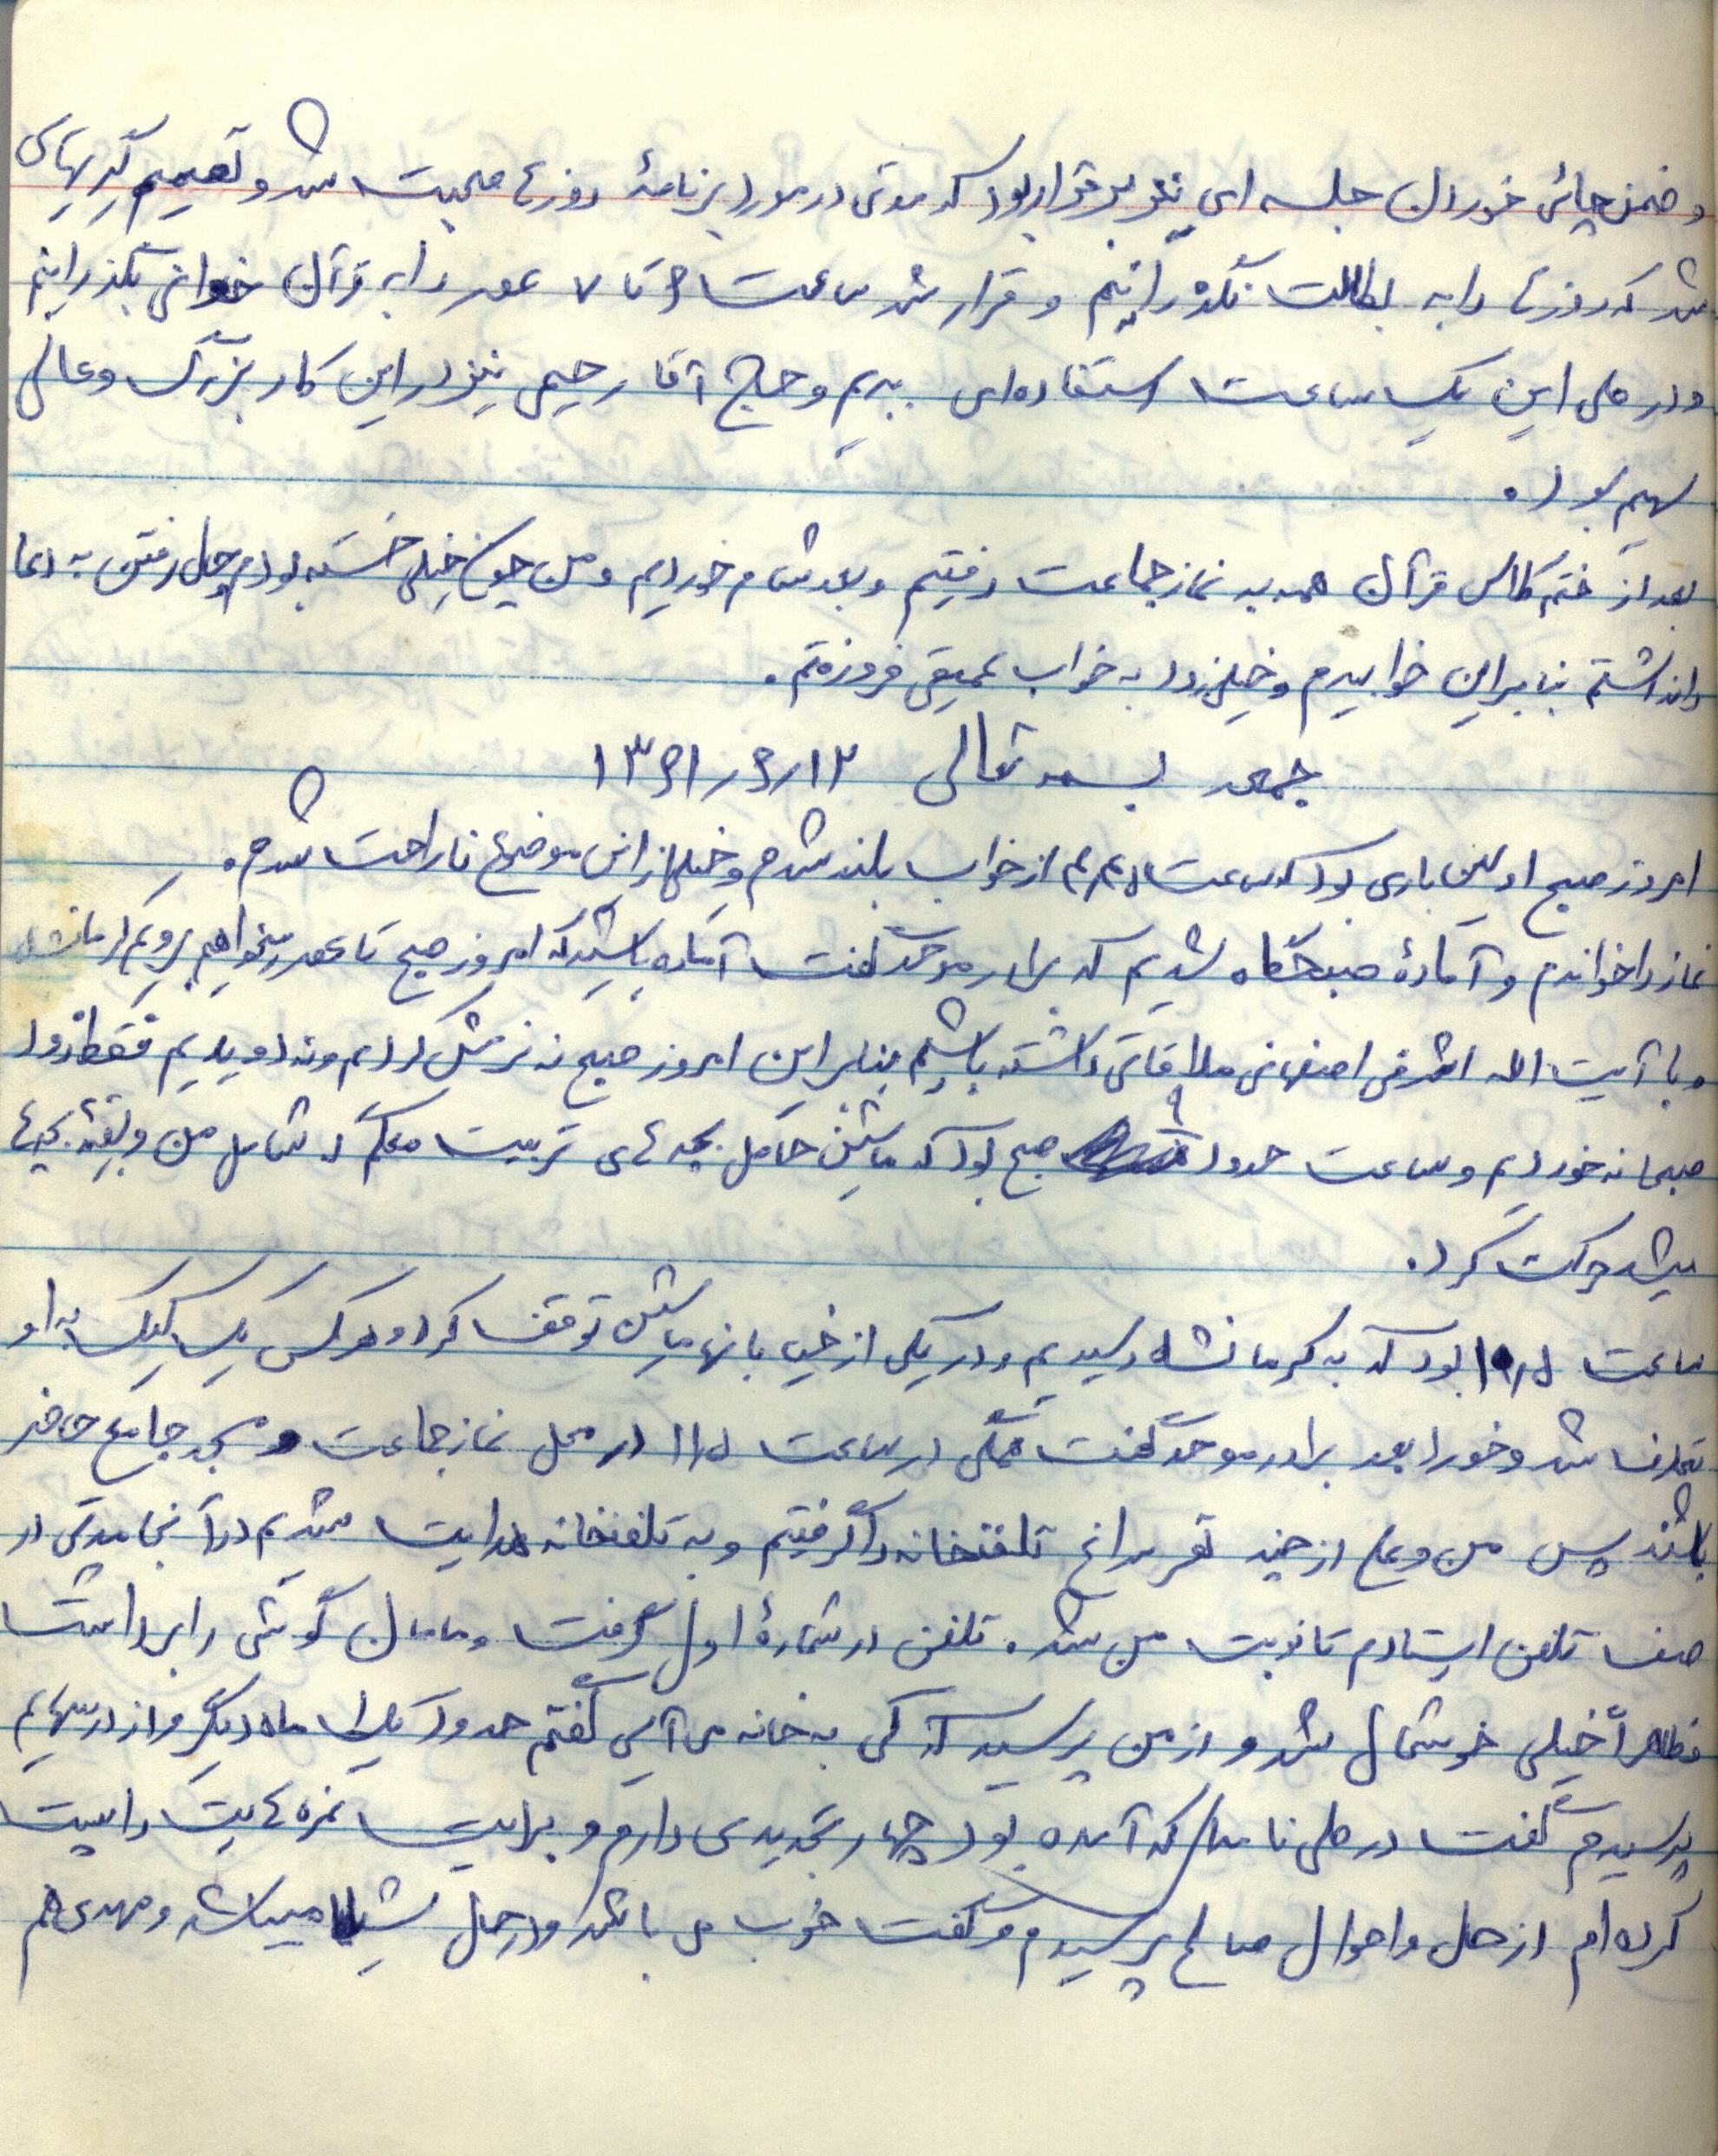 و ضمن چائی خوردن جلسه ای نیز برقرار بود که مدتی در مورد برنامهٔ روزها صحبت شد و تصمیم گیریهای
شد که روزها را به بطالت نگذرانیم و قرار شد ساعت ۶ تا ۷ عصر را به قرآن خوانی بگذرانیم
و در طی این یک ساعت استفاده‌ای ببریم و حاج آقا رحیمی نیز در این کار بزرگ و عالی
سهیم بود.
بعد از ختم کلاس قرآن همه به نماز جماعت رفتیم و بعد شام خوردیم و من چون خیلی خسته بودم حال رفتن به دعا
را نداشتم بنابراین خوابیدم و خیلی زود به خواب عمیقی فرو رفتم.
جمعه بسمه تعالی ۱۳۶۱/۶/۱۲
امروز صبح اولین باری بود که ساعت از خواب بلند شدم و خیلی از این موضوع ناراحت شدم.
نماز را خواندم و آمادهٔ صبحگاه شدیم که برادر موحد گفت آماده باشید که امروز صبح تا عصر میخواهیم برویم کرمانشاه
و با آیت الله اشرفی اصفهانی ملاقاتی داشته باشیم بنابراین امروز صبح نه نرمش کردیم و نه دویدیم فقط زود
صبحانه خوردیم و ساعت حدود ۹ صبح بود که ماشین حامل بچه های تربیت معلم که شامل من و بقیه بچه‌ها
میشد حرکت کرد.
ساعت ۱۰/۵ بود که به کرمانشاه رسیدیم و در یکی از خیابانها ماشین توقف کرد و هر کس یک کیک به او
تعارف شد و خورد بعد برادر موحد گفت همگی در ساعت ۱۱/۵ در محل نماز جماعت و مسجد جامع حاضر
باشند پس من و علی از چند نفر سراغ تلفنخانه را گرفتیم و به تلفنخانه هدایت شدیم در آنجا مدتی در
صف تلفن ایستادم تا نوبت من شد. تلفن در شمارهٔ اول گرفت و مامان گوشی را برداشت
ظاهراً خیلی خوشحال شد و از من پرسید که کی به خانه می‌آیی گفتم حدود یک ماه دیگر و از درسهایم
پرسیدم گفت در طی نامه‌ای که آمده بود چهار تجدیدی دارم و برایت نمره هایت را پست
کرده‌ام از حال و احوال صالح پرسیدم و گفت خوب می باشد و در حال میباشد و مهدی هم